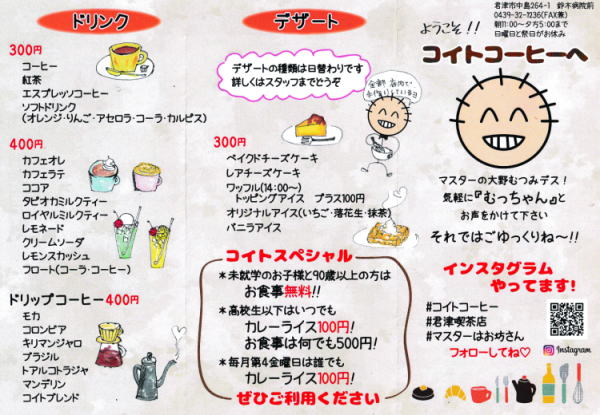 ドリンク
300円
コーヒー
紅茶
エスプレッソコーヒー
ソフトドリンク
(オレンジ・りんご・アセロラ・コーラ・カルピス)
400円
カフェオレ
カフェラテ
ココア
タピオカミルクティー
ロイヤルミルクティー
レモネード
クリームソーダ
レモンスカッシュ
フロート(コーラ・コーヒー)
ドリップコーヒー400円
モカ
コロンビア
キリマンジャロ
ブラジル
トアルコトラジャ
マンデリン
コイトブレンド
デザート
デザートの種類は日替わりです
詳しくはスタッフまでどうぞ
全部店内で
手作りしているヨ
300円
ベイクドチーズケーキ
レアチーズケーキ
ワッフル(14:00~)
トッピングアイス プラス100円
オリジナルアイス(いちご・落花生・抹茶)
バニラアイス
コイトスペシャル
*未就学のお子様と90歳以上の方は
お食事無料!!
*高校生以下はいつでも
カレーライス100円!
お食事は何でも500円!
*毎月第4金曜日は誰でも
カレーライス100円!
ぜひご利用ください
君津市中島264-1 鈴木病院前
0439-32-1236(FAX兼)
朝11:00~夕方5:00まで
日曜日と祭日がお休み
ようこそ!!
コイトコーヒーへ
マスターの大野むつみデス!
気軽に『むっちゃん』と
お声をかけて下さい
それではごゆっくりね~!!
インスタグラム
やってます!
#コイトコーヒー
#君津喫茶店
#マスターはお坊さん
フォローしてね♡
Instagram